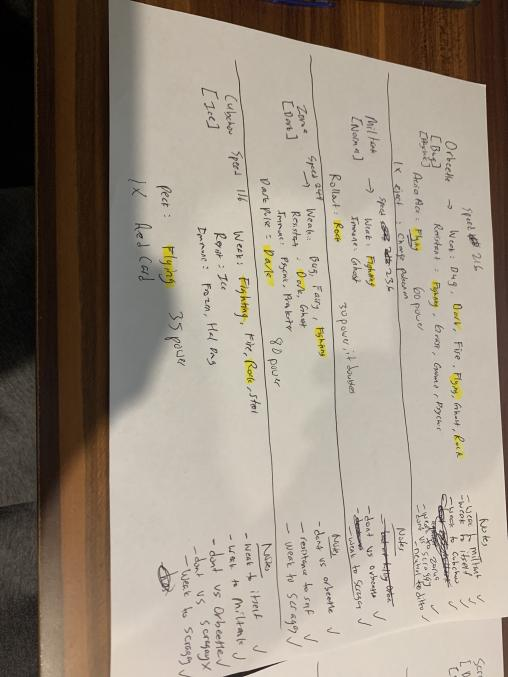 Orbeetle
[Bug]
[Psychic]
Speed 216
→ Weak: Bug, Dark, Fire, Flying, Ghost, Rock
Resistant: Fighting, Grass, Ground, Psychic
Aerial Ace: Flying 60 power
1x eject
Notes
- weak to miltank ✓
- weak to itself ✓
- weak to Cubchoo ✓
- don't vs scraggy ✓
- neutral to ditto ✓
Miltank
[Normal]
→ Speed 236
Weak: Fighting
Immune: Ghost
Rollout: Rock 30 power, it doubles
Notes
- dont vs orbeetle ✓
- weak to Scraggy ✓
Zorua
[Dark]
Speed 249
→ Weak: Bug, Fairy, Fighting
Resistant: Dark, Ghost
Immune: Psychic, Prankster
Dark Pulse = Dark 80 power
Notes
- dont vs orbeetle ✓
- resistance to self ✓
- weak to Scraggy ✓
Cubchoo
[Ice]
Speed 116
Weak: Fighting, Fire, Rock, Steel
Resist: Ice
Immune: Frozen, Hail Dmg
Peck: Flying 35 power
1x Red Card
Notes
- weak to itself ✓
- weak to Miltank ✓
- dont vs Orbeetle ✓
- dont vs Scraggy X
- weak to scraggy ✓